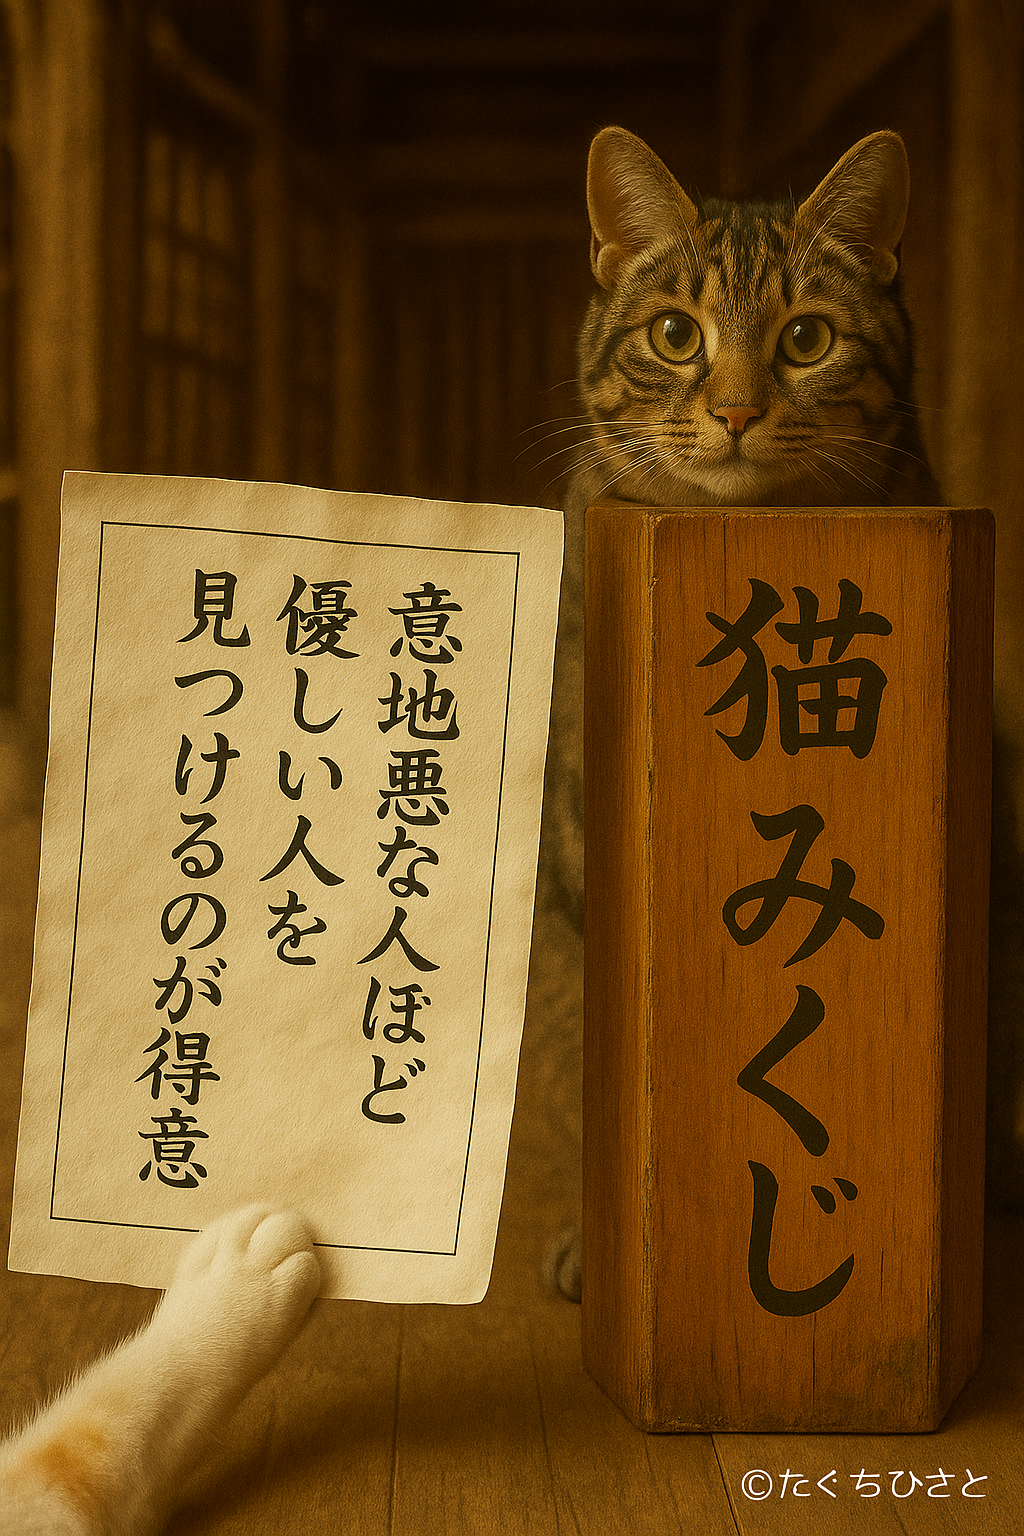 意地悪な人ほど
優しい人を
見つけるのが得意
猫みくじ
©たぐちひさと